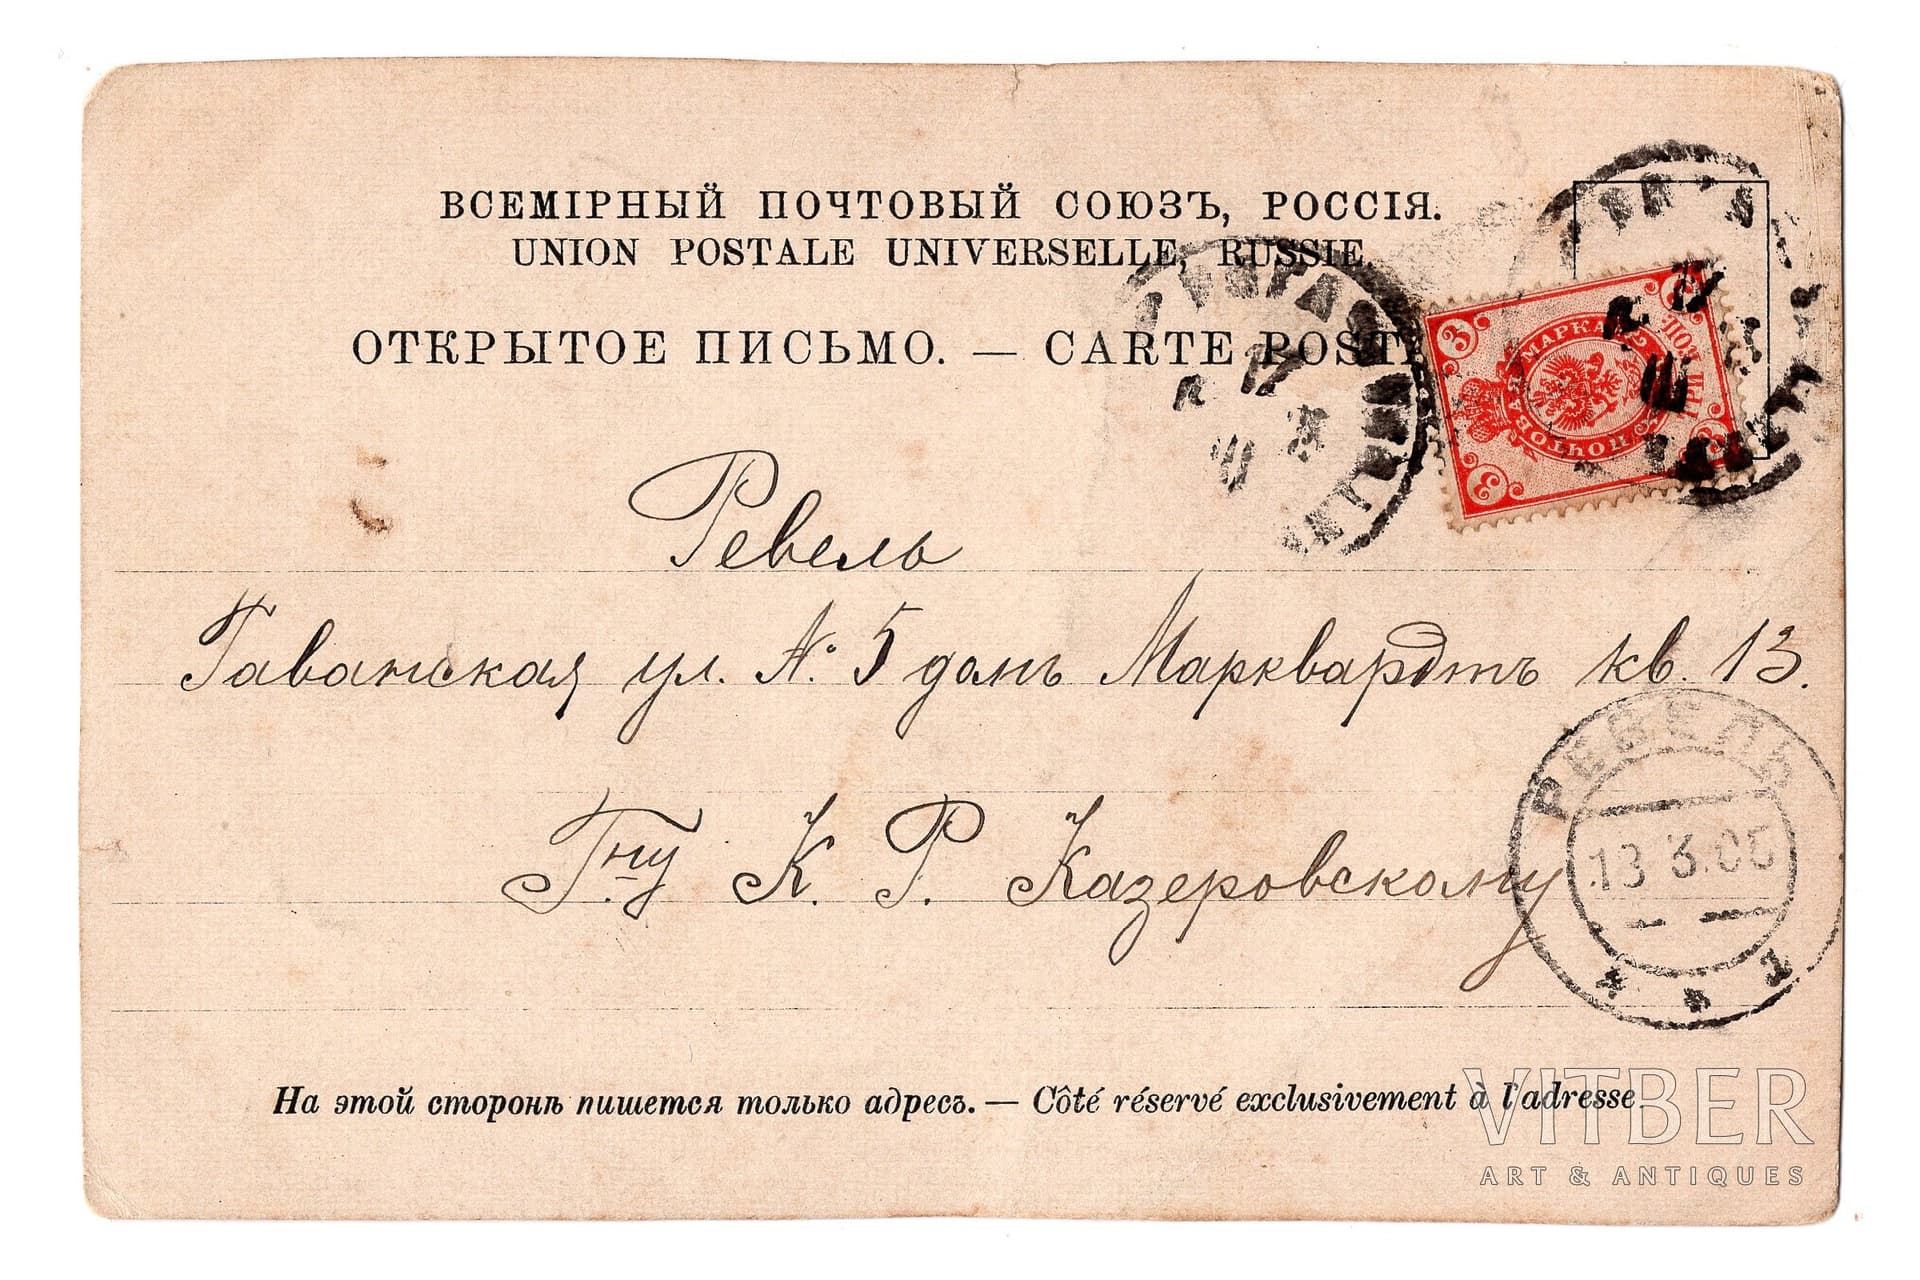 ВСЕМІРНЫЙ ПОЧТОВЫЙ СОЮЗЪ, РОССІЯ.
UNION POSTALE UNIVERSELLE, RUSSIE.
ОТКРЫТОЕ ПИСЬМО. — CARTE POST
3 МАРКА ПОЧТОВАЯ 3 3
Ревель
Гаванская ул. № 5 домъ Марквардтъ кв. 13.
РЕВЕЛЬ
13.3.05
1
Г.ну К. Р. Казеровскому
На этой сторонѣ пишется только адресъ. — Côté réservé exclusivement à l'adresse.
VITBER
ART & ANTIQUES